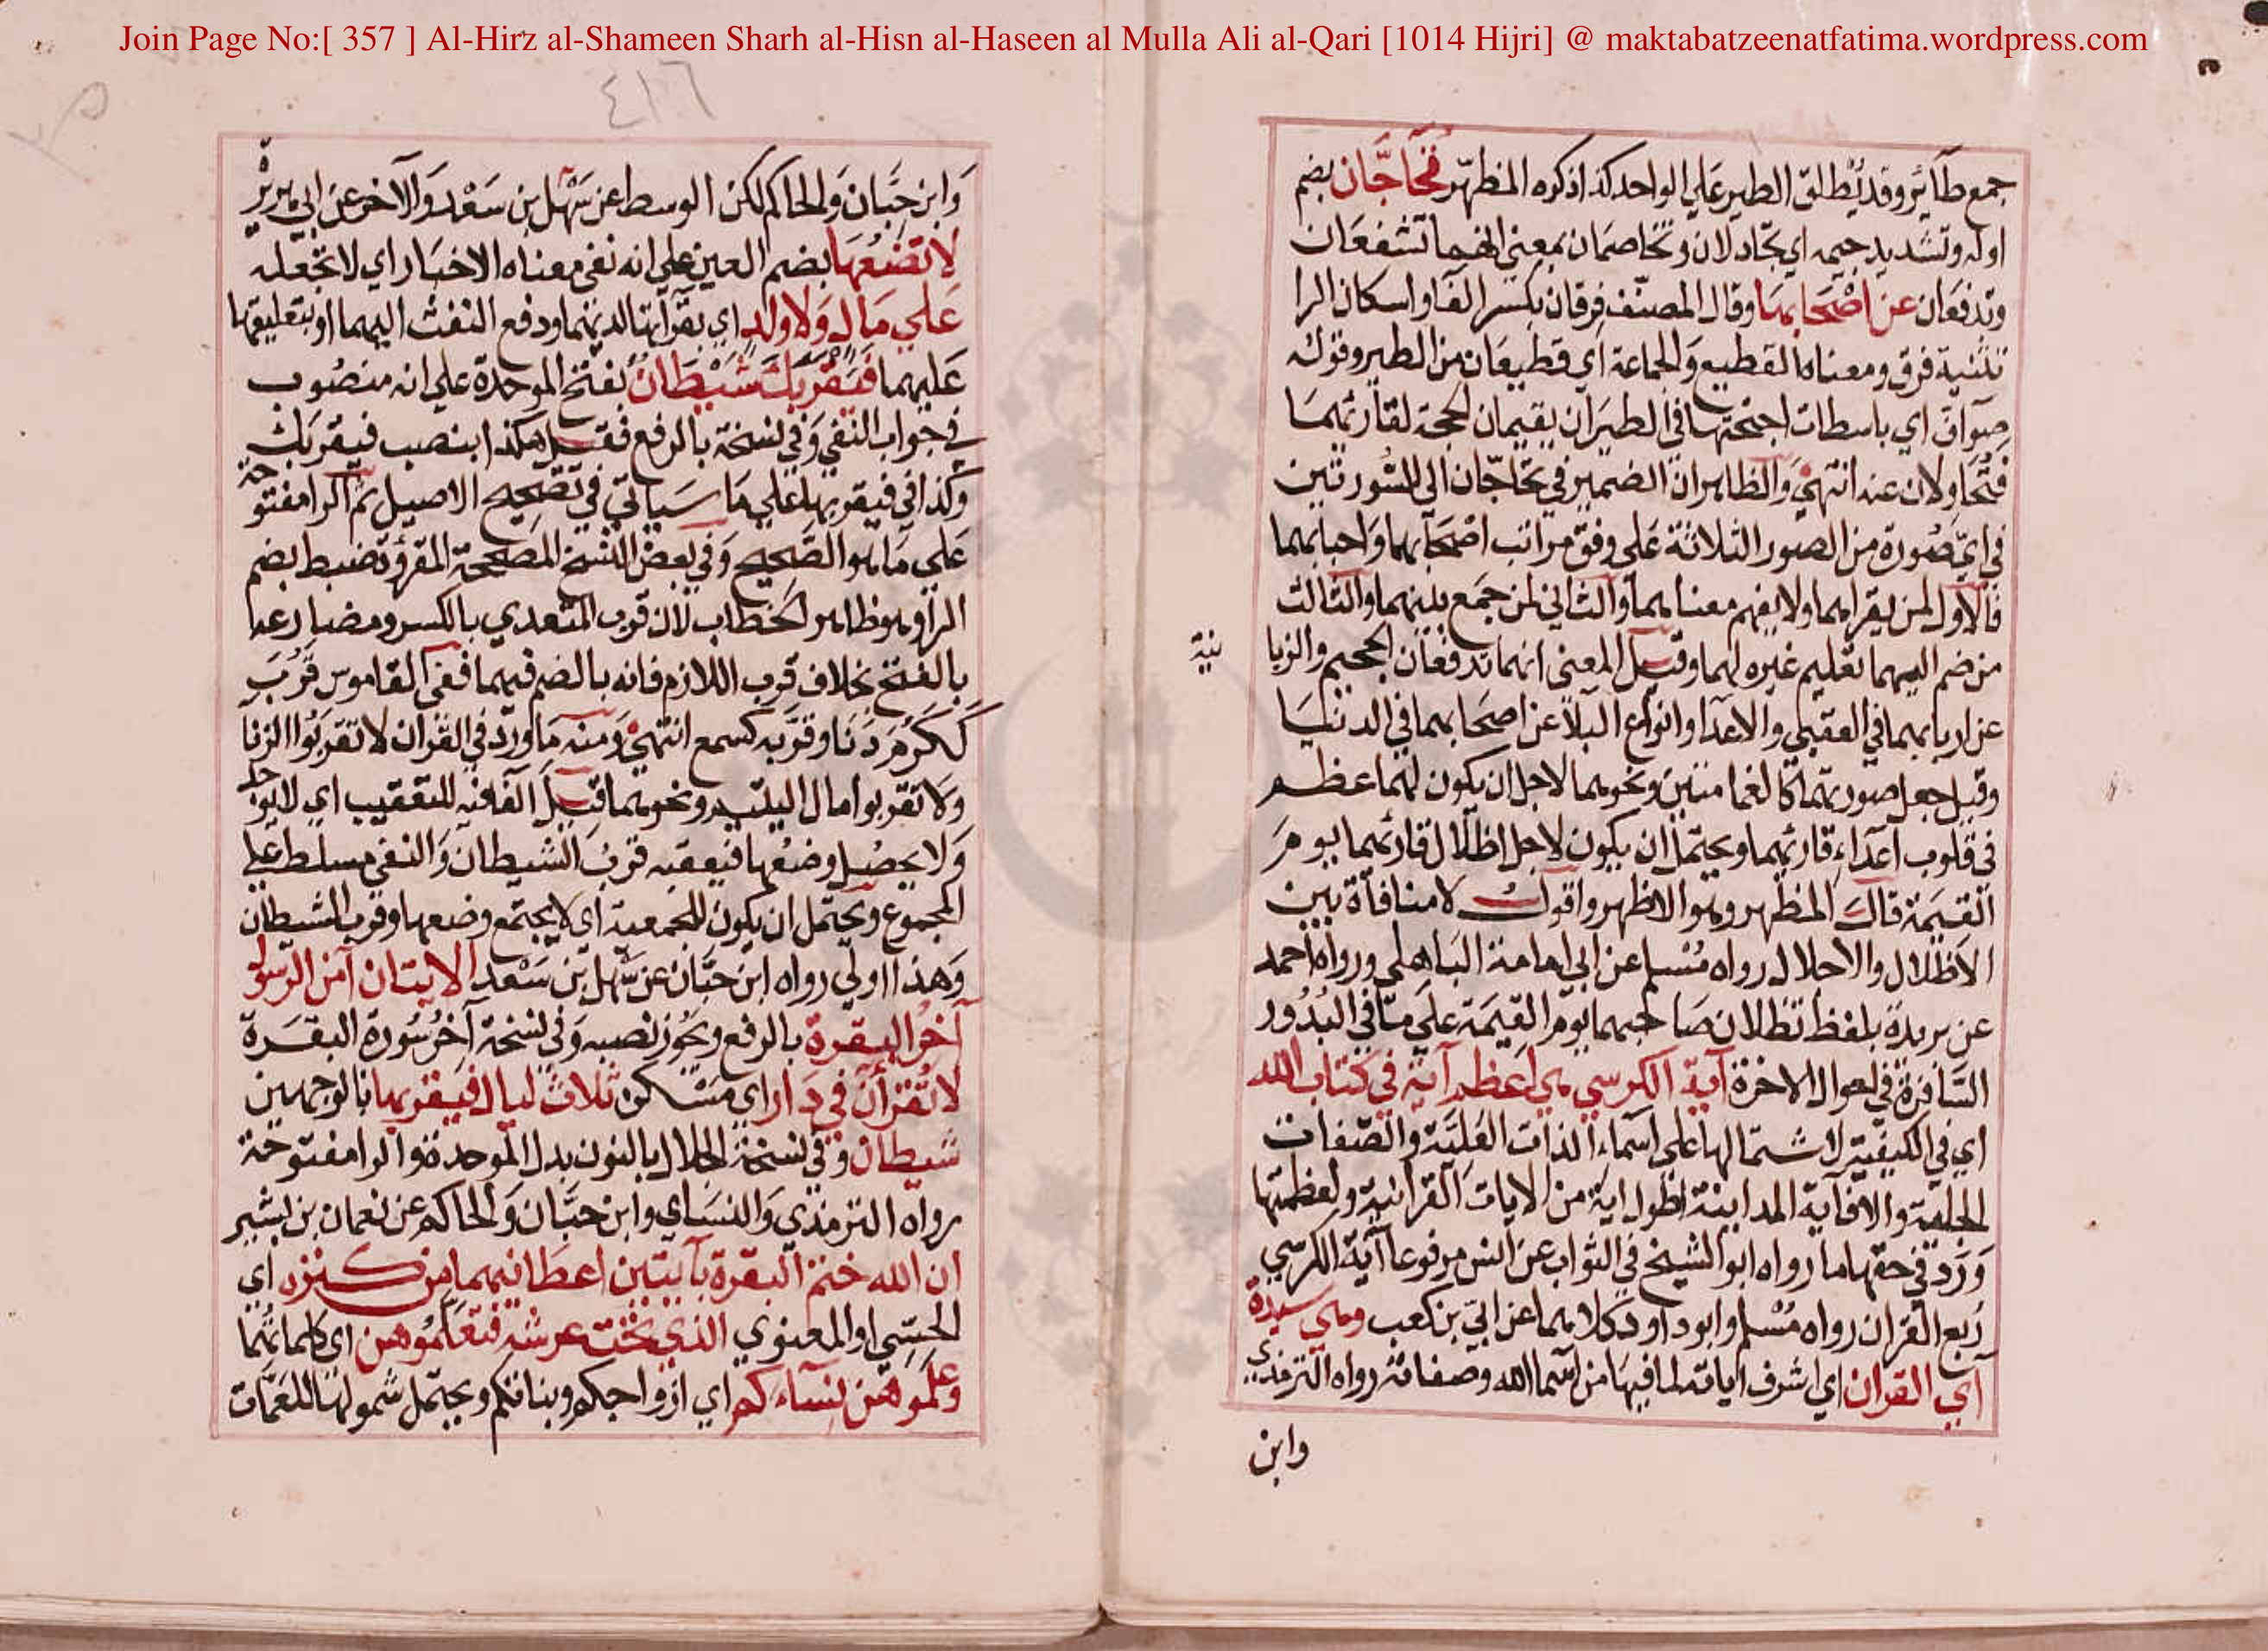 Join Page No:[ 357 ] Al-Hirz al-Shameen Sharh al-Hisn al-Haseen al Mulla Ali al-Qari [1014 Hijri] @ maktabatzeenatfatima.wordpress.com
جمع طآئر وقد يُطلق الطير على الواحد كذا ذكره المظهر تحاجّان بضم
اوله وتشديد جيمه اي تجادلان وتخاصمان بمعنى انهما تشفعان
وتدفعان عن اصحابهما وقال المصنف فرقان بكسر الفا واسكان الرا
تثنية فرق ومعناه القطيع والجماعة اي قطيعان من الطير وقوله
صوآف اي باسطات اجنحتها في الطيران يقيمان الحجة لقارئهما
ويجاولان عنه انتهى والظاهر ان الضمير في تحاجّان الى السورتين
في ايّ صورة من الصور الثلاثة على وفق مراتب اصحابهما واحبابهما
فالاول لمن يقراهما ولا يفهم معناهما والثاني لمن جمع بينهما والثالث
من ضم اليهما تعليم غيره لهما وقيل المعنى انهما تدفعان الجحيم والزبا
نية
عن اربابهما في العقبى والاعدا وانواع البلا عن اصحابهما في الدنيا
وقيل جعل صورتهما كالغمامتين ونحوهما لاجل ان يكون لهما عظم
في قلوب اعدآء قارئهما ويحتمل ان يكون لاجل اظلال قارئهما يوم
القيمة قال المظهر وهو الاظهر واقول لا منافاة بين
الاظلال والاحلال رواه مسلم عن ابي امامة الباهلي ورواه احمد
عن بريدة بلفظ تظلان صاحبهما يوم القيمة على ما في البدور
السافرة في احوال الاخرة آية الكرسي هي اعظم آية في كتاب الله
اي في الكيفية لاشتمالها على اسماء الذات العلية والصفات
الجلية والا فآية المداينة اطول اية من الايات القرانية ولعظمتها
ورد في حقها ما رواه ابو الشيخ في الثواب عن انس مرفوعا آية الكرسي
ربع القران رواه مسلم وابو داود كلاهما عن ابيّ بن كعب وهي سيدة
آي القران اي اشرف اياته لما فيها من اسما الله وصفاته رواه الترمذي
وابن
٤١٦
وابن حبان والحاكم لكن الوسط عن سهل بن سعد والآخر عن ابي هريرة
لا تضعها بضم العين على انه نفي معناه الاخبار اي لا تجعله
على مال ولا ولد اي بقرآتها لديهما ودفع النفث اليهما او بتعليقها
عليهما فيقربك شيطان بفتح الموحدة على انه منصوب
في جواب النفي وفي نسخة بالرفع فقيل هكذا بنصب فيقربك
وكذا في فيقربها على ما سياتي في تصحيح الاصيل ثم الرا مفتوحة
على ما هو الصحيح وفي بعض النسخ المصححة المقروة ضبط بضم
الرا وهو ظاهر الخطاب لان قرب المتعدي بالكسر ومضارعها
بالفتح بخلاف قرب اللازم فانه بالضم فيهما ففي القاموس قرب
ككرم دنا وقربه كسمع انتهى ومنه ما ورد في القران لا تقربوا الزنا
ولا تقربوا مال اليتيم ونحوهما قيل الفا فيه للتعقيب اي لا يوجد
ولا يحصل وضعها فيعقبه قرب الشيطان والنفي مسلط على
المجموع ويحتمل ان يكون للجمعية اي لا يجتمع وضعها وقرب الشيطان
وهذا اولى رواه ابن حبان عن سهل بن سعد الايتان آمن الرسول
آخر البقرة بالرفع ويجوز نصبه وفي نسخة آخر سورة البقرة
لا تقرآن في دار اي مسكن ثلاث ليال فيقربها بالوجهين
شيطان وفي نسخة الجلال بالنون بدل الموحدة والرا مفتوحة
رواه الترمذي والنساي وابن حبان والحاكم عن نعمان بن بشير
ان الله ختم البقرة بآيتين اعطانيهما من كنزه اي
الحسي او المعنوي الذي تحت عرشه فتعلموهن اي كلماتهما
وعلموهن نساءكم اي ازواجكم وبناتكم ويحتمل شمولها للعمات